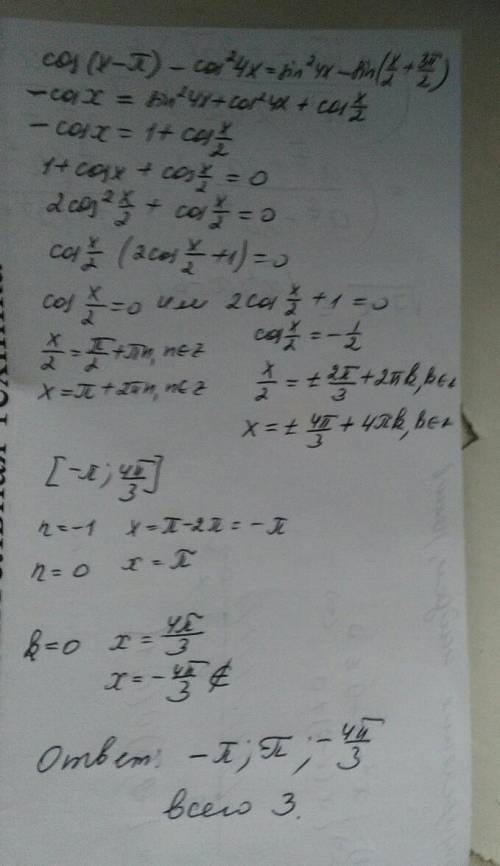 cos(x-π) - cos²4x = sin²4x - sin(x/2 + 3π/2)
-cosx = sin²4x + cos²4x + cos x/2
-cosx = 1 + cos x/2
1 + cosx + cos x/2 = 0
2cos² x/2 + cos x/2 = 0
cos x/2 (2cos x/2 + 1) = 0
cos x/2 = 0 или 2cos x/2 + 1 = 0
x/2 = π/2 + πn, n∈z
x = π + 2πn, n∈z
cos x/2 = -1/2
x/2 = ± 2π/3 + 2πk, k∈z
x = ± 4π/3 + 4πk, k∈z
[-π; 4π/3]
n=-1 x = π-2π = -π
n=0 x = π
k=0 x = 4π/3
x = -4π/3 ∉
Ответ: -π; π; -4π/3
всего 3.